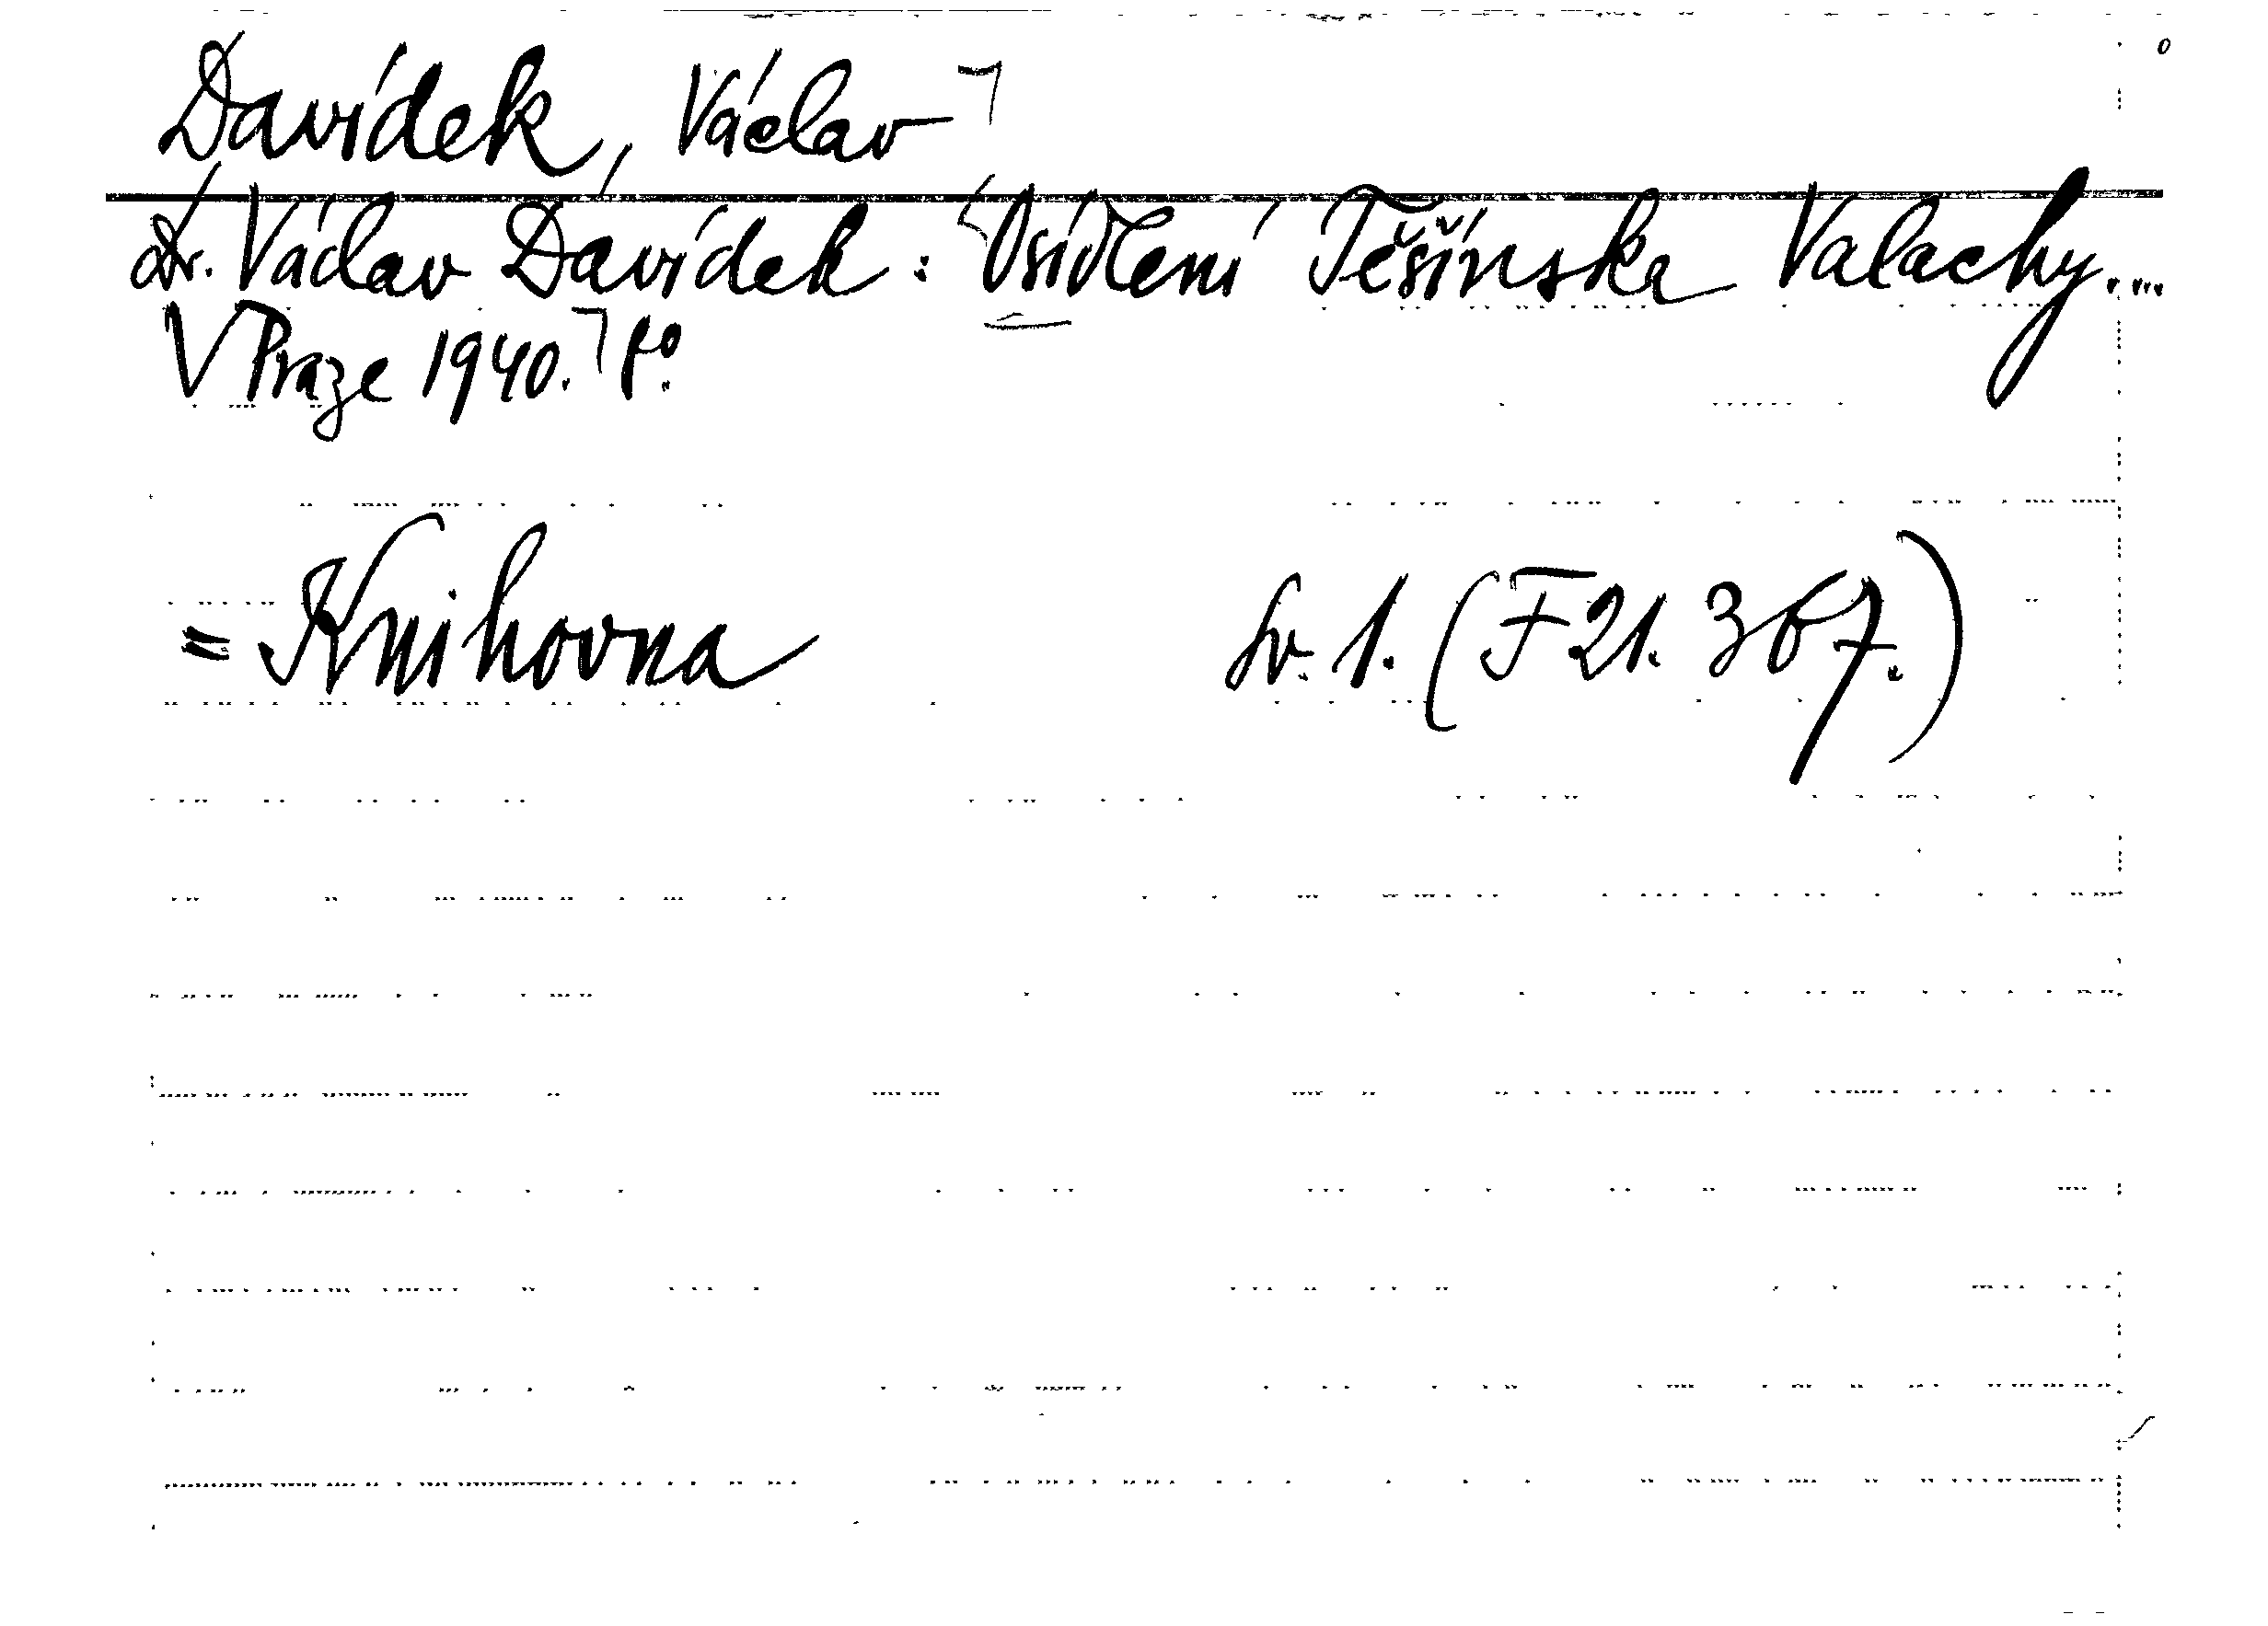 Davídek, Václav
Dr. Václav Davídek: Osídlení Těšínska Valachy....
V Praze 1940. 8°.
= Knihovna Sv. 1. (F 21. 367.)